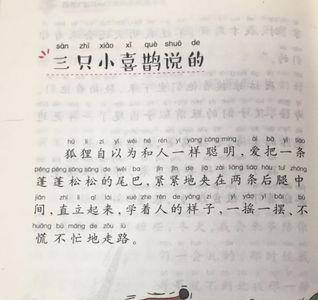 sān zhī xiǎo xǐ què shuō de
三只小喜鹊说的
hú li zì yǐ wéi hé rén yí yàng cōng míng , ài bǎ yì tiáo
狐狸自以为和人一样聪明，爱把一条
péng péng sōng sōng de wěi ba jǐn jǐn de jiā zài liǎng tiáo hòu tuǐ zhōng
蓬蓬松松的尾巴，紧紧地夹在两条后腿中
jiān zhí lì qǐ lái xué zhe rén de yàng zi yì yáo yì bǎi bù
间，直立起来，学着人的样子，一摇一摆、不
huāng bù máng de zǒu lù
慌不忙地走路。